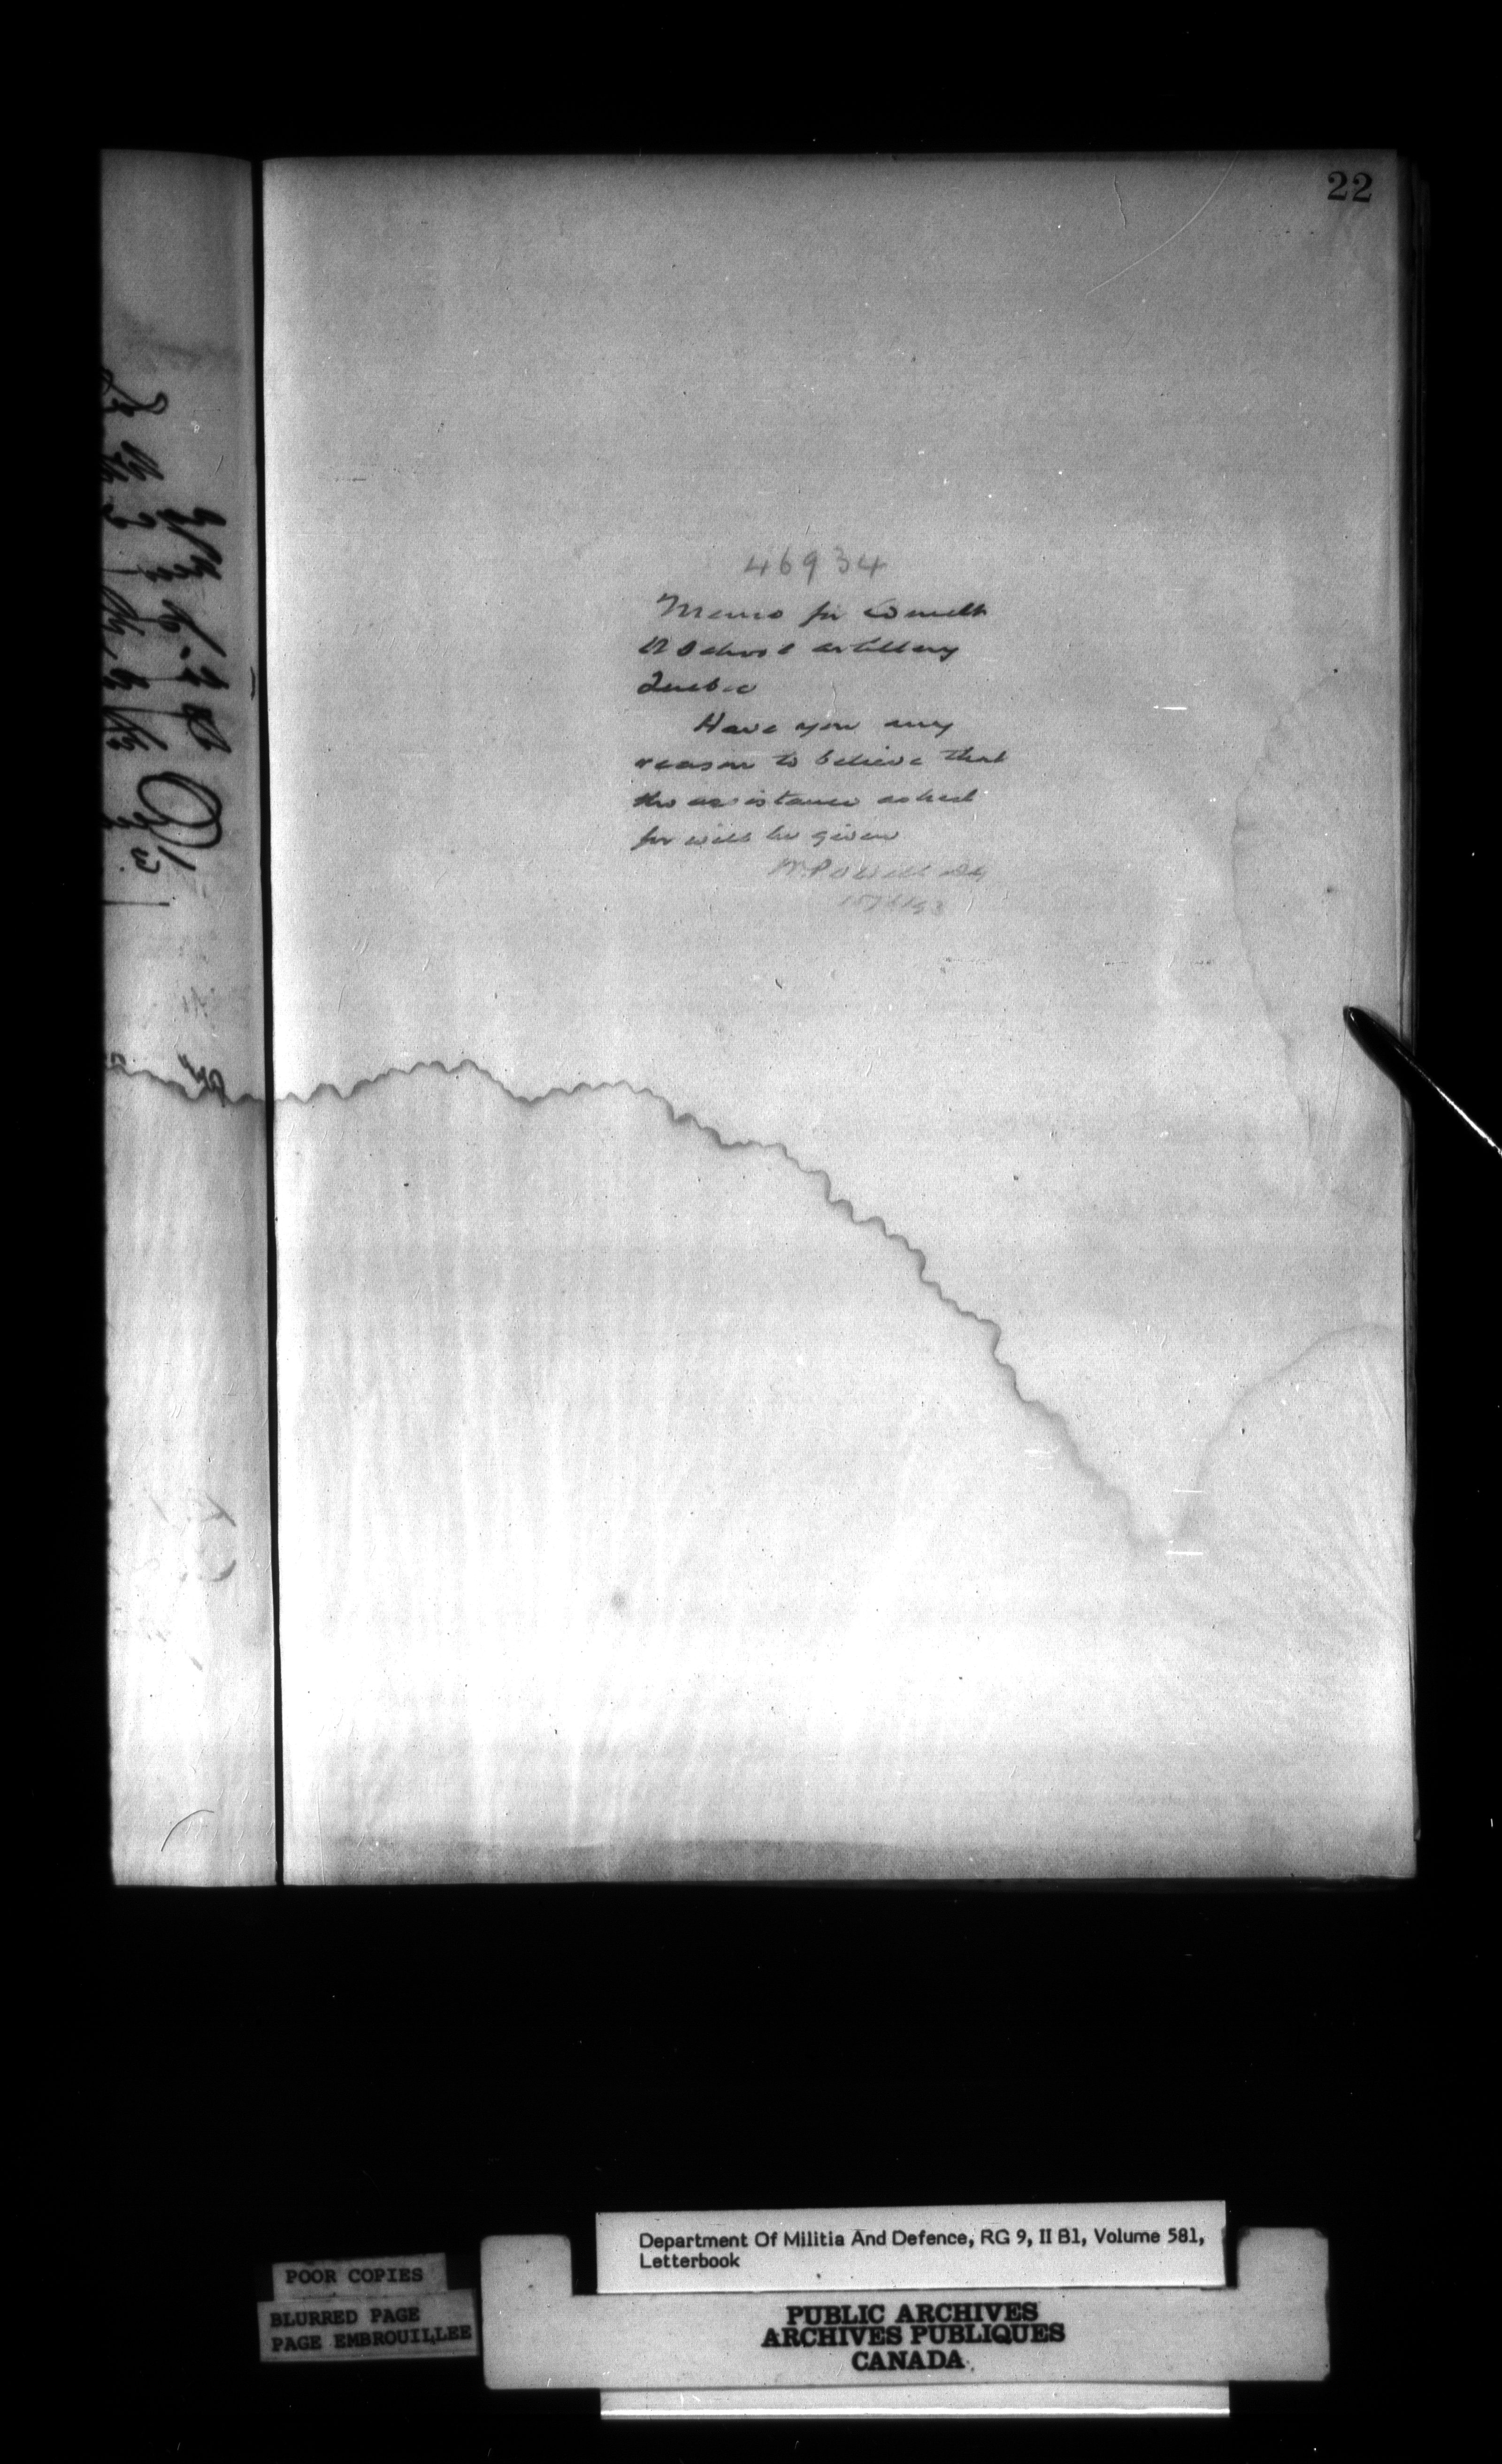 22
46934
Memo for Comdt
R School Artillery
Quebec
Have you any
reason to believe that
the assistance asked
for will be given
W. Powell
Department Of Militia And Defence, RG 9, II B1, Volume 581,
Letterbook
POOR COPIES
BLURRED PAGE
PAGE EMBROUILLEE
PUBLIC ARCHIVES
ARCHIVES PUBLIQUES
CANADA